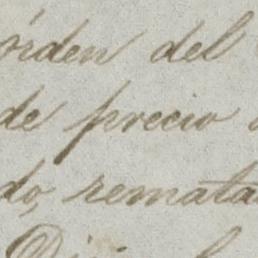 orden del
de precio
do, remata